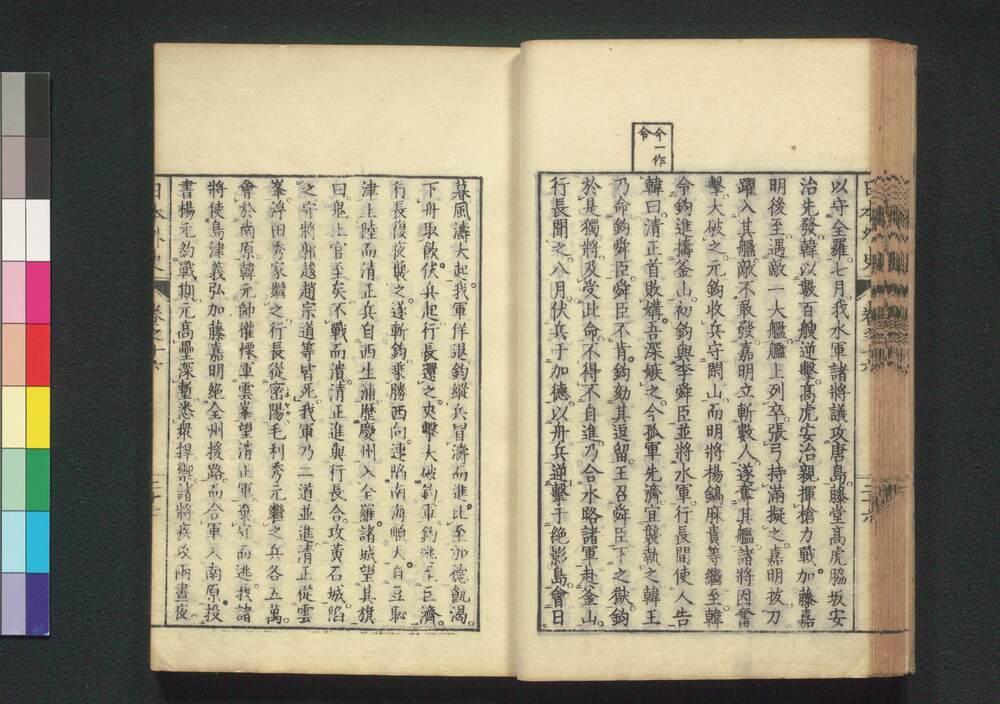 今一作
令
以守全羅七月我水軍諸將議攻唐島藤堂高虎脇坂安
治先發韓以數百艘逆擊高虎安治親揮槍力戰加藤嘉
明後至遇敵一大艦艦上列卒張弓持滿擬之嘉明拔刀
躍入其艦敵不敢發嘉明立斬數人遂奪其艦諸將因奮
擊大破之元鈞收兵守閑山而明將楊鎬麻貴等繼至韓
令鈞進擣釜山初鈞與李舜臣並將水軍行長間使人告
韓曰清正首敗媾吾深嫉之今孤軍先濟宜襲執之韓王
乃命鈞舜臣舜臣不肯鈞劾其逗留王召舜臣下之獄鈞
於是獨將及受此命不得不自進乃合水路諸軍赴釜山
行長聞之八月伏兵于加德以舟兵逆擊于絕影島會日
暮風濤大起我軍佯退鈞縱兵冒濤而進比至加德飢渴
下舟取飲伏兵起行長還之夾擊大破鈞軍鈞逃巨濟
行長復夜襲之遂斬鈞乘勝西向連陷南海順天自豆恥
津上陸而清正兵自西生浦歷慶州入全羅諸城望其旗
曰鬼上官至矣不戰而潰清正進與行長合攻黃石城陷
之守將郭䞭趙宗道等皆死我軍乃二道並進清正從雲
峯浮田秀家繼之行長從密陽毛利秀元繼之兵各五萬
會於南原韓元帥權慄軍雲峯望清正軍棄而逃我諸
將使島津義弘加藤嘉明絕全州援路而合軍入南原投
書楊元約戰期元高壘深塹悉衆捍禦諸將疾攻兩晝夜
日本外史
卷之十六